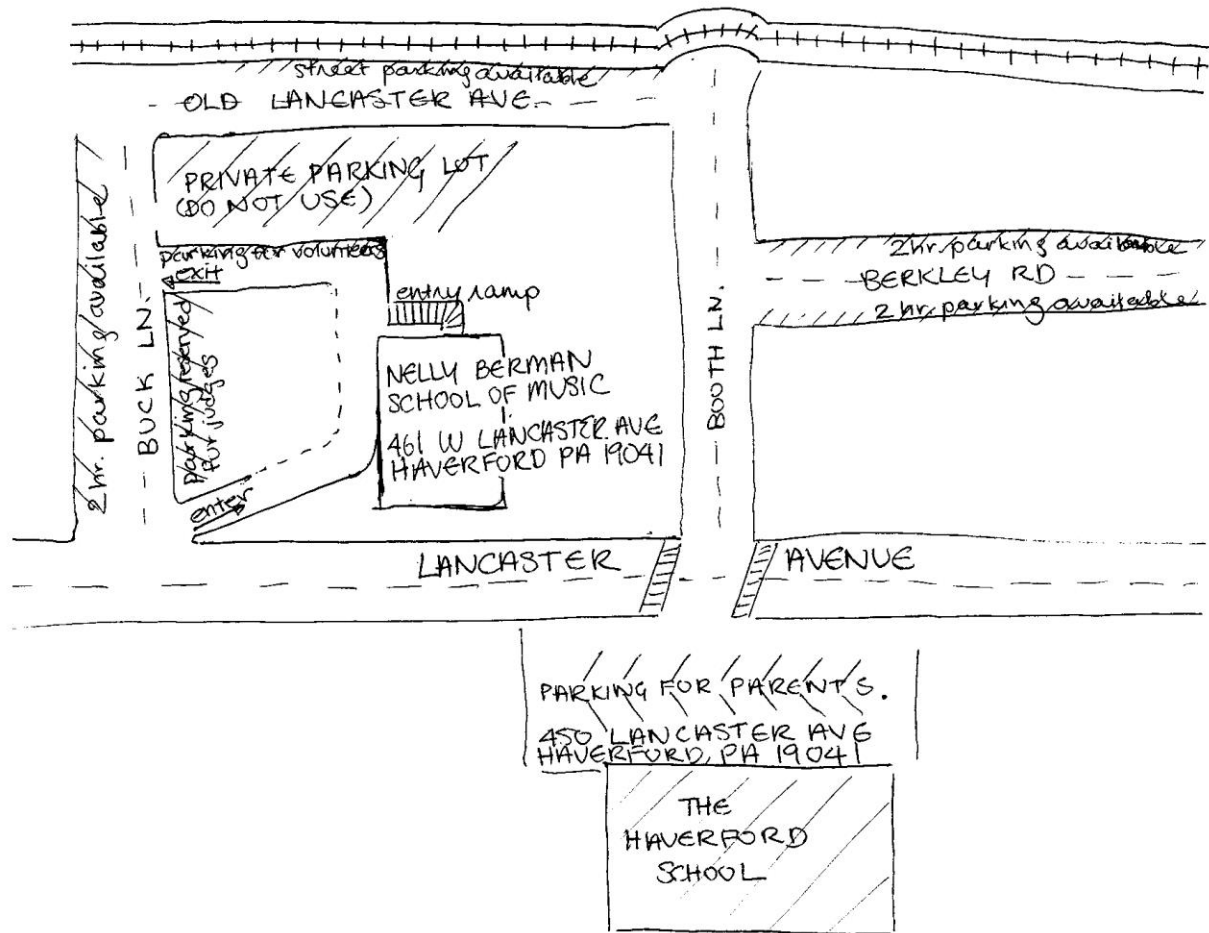 street parking available
OLD LANCASTER AVE.
PRIVATE PARKING LOT
(DO NOT USE)
2 hr. parking available
BUCK LN.
parking for volunteers
exit
parking reserved
for judges
enter
entry ramp
NELLY BERMAN
SCHOOL OF MUSIC
461 W LANCASTER AVE
HAVERFORD PA 19041
BOOTH LN.
2 hr. parking available
BERKLEY RD
2 hr. parking available
LANCASTER AVENUE
PARKING FOR PARENTS.
450 LANCASTER AVE
HAVERFORD, PA 19041
THE
HAVERFORD
SCHOOL